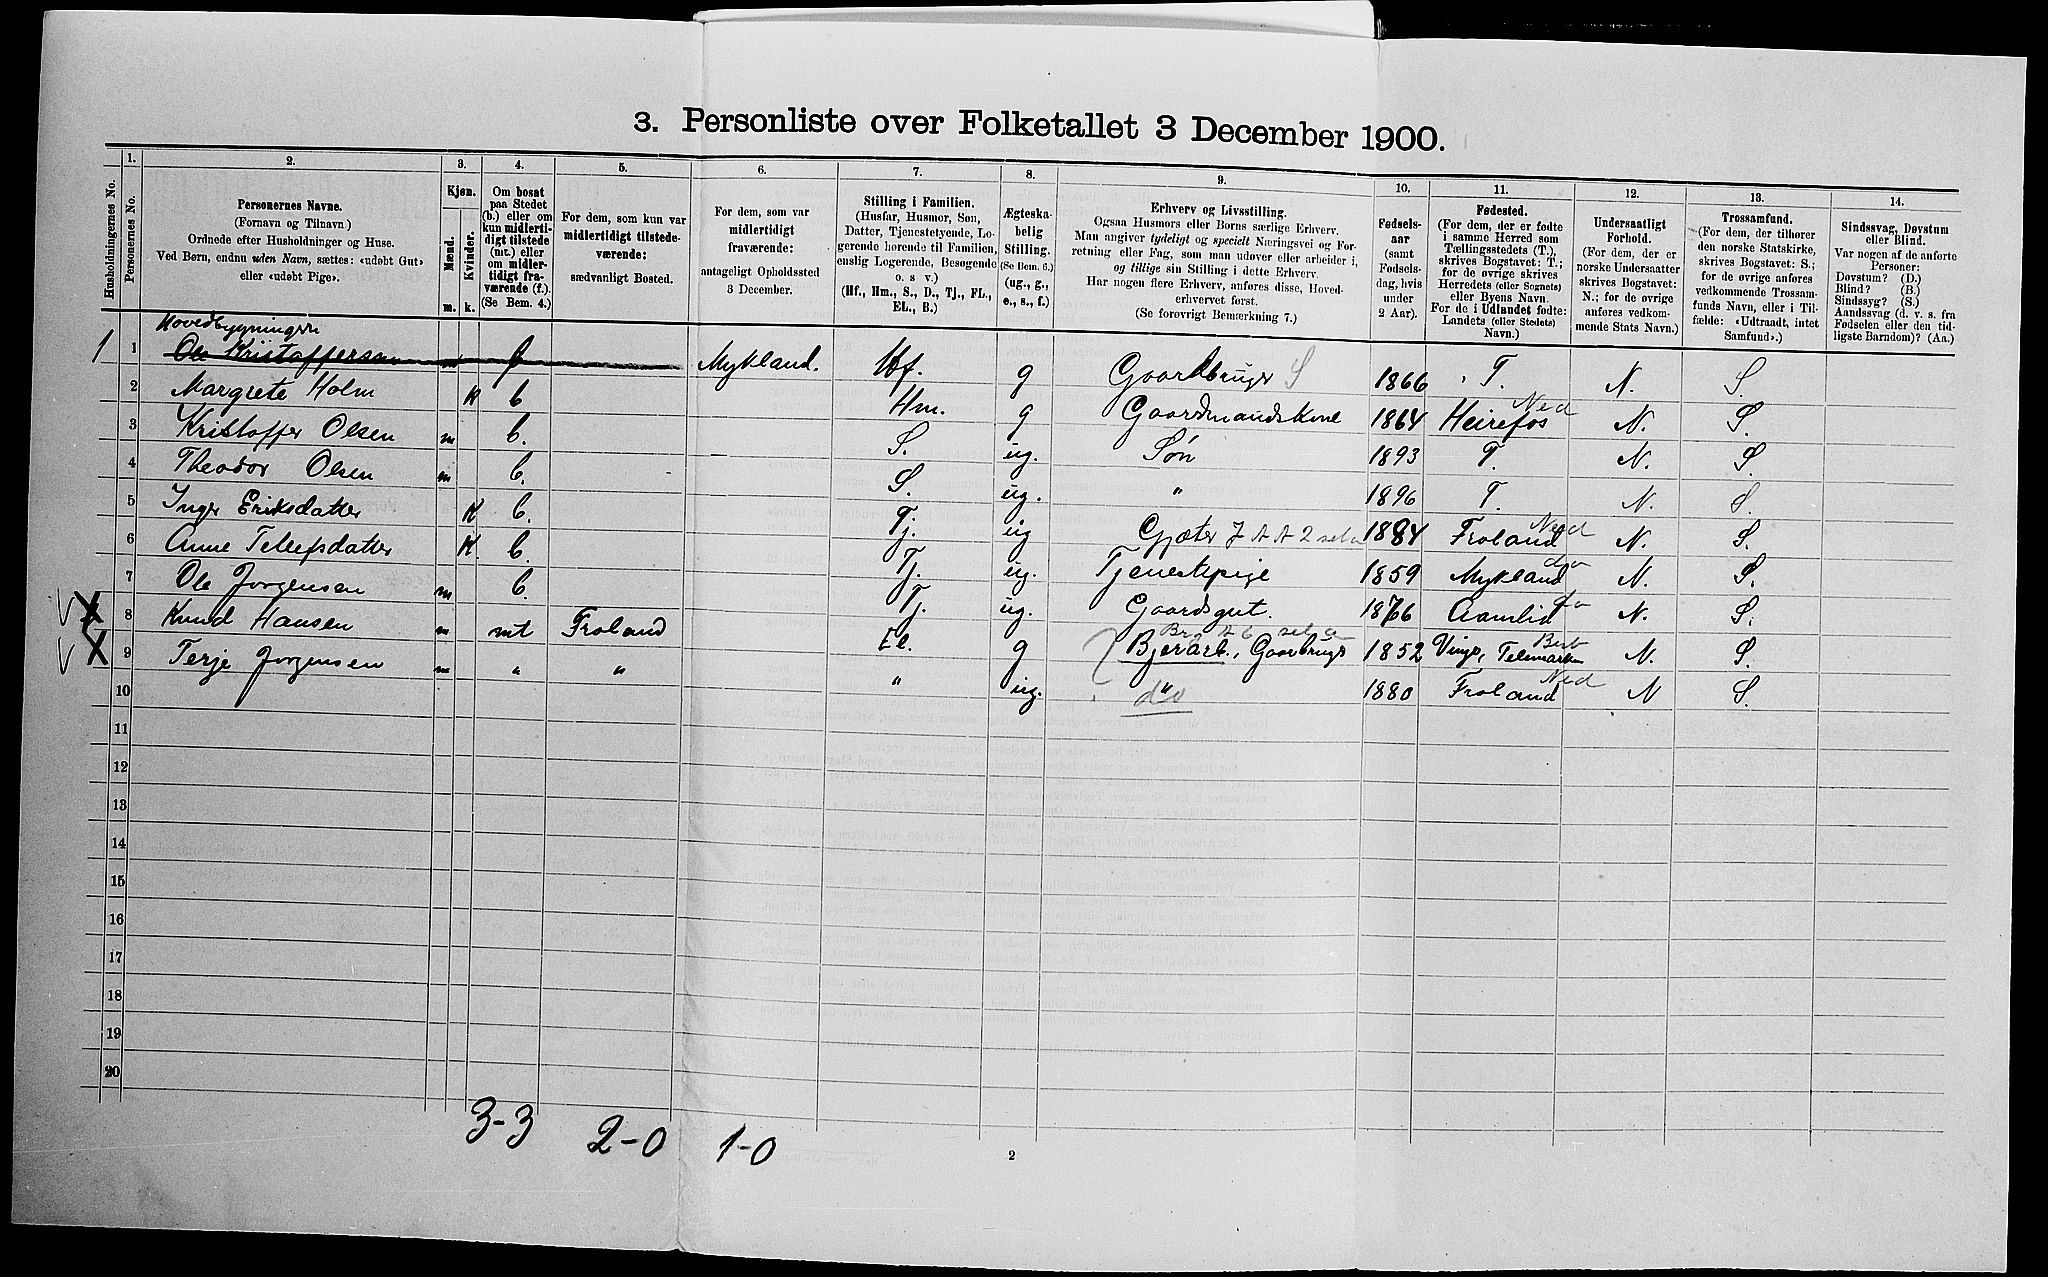 3. Personliste over Folketallet 3 December 1900.
Husholdningernes No.
1.
Personernes No.
2.
Personernes Navne.
(Fornavn og Tilnavn)
Ordnede efter Husholdninger og Huse.
Ved Børn, endnu uden Navn, sættes: «udøbt Gut»
eller «udøbt Pige».
3.
Kjøn.
Mænd.
Kvinder.
m. k.
4.
Om bosat
paa Stedet
(b.) eller om
kun midlerti-
digt tilstede
(mt.) eller
om midler-
tidigt fra-
værende (f.).
(Se Bem. 4.)
5.
For dem, som kun var
midlertidigt tilstede-
værende:
sædvanligt Bosted.
6.
For dem, som var
midlertidigt
fraværende:
antageligt Opholdssted
3 December.
7.
Stilling i Familien.
(Husfar, Husmor, Søn,
Datter, Tjenestetyende, Lo-
gerende hørende til Familien,
enslig Logerende, Besøgende
o. s v.)
(Hf., Hm., S., D., Tj., FL.,
EL., B.)
8.
Ægteska-
belig
Stilling.
(Se Bem. 6.)
(ug., g.,
e., s., f.)
9.
Erhverv og Livsstilling.
Ogsaa Husmors eller Børns særlige Erhverv.
Man angiver tydeligt og specielt Næringsvei og For-
retning eller Fag, som man udøver eller arbeider i,
og tillige sin Stilling i dette Erhverv.
Har nogen flere Erhverv, anføres disse, Hoved-
erhvervet først.
(Se forøvrigt Bemærkning 7.)
10.
Fødsels-
aar
(samt
Fødsels-
dag, hvis
under
2 Aar).
11.
Fødested.
(For dem, der er fødte
i samme Herred som
Tællingsstedets (T.),
skrives Bogstavet: T.;
for de øvrige skrives
Herredets (eller Sognets)
eller Byens Navn.
For de i Udlandet fødte:
Landets (eller Stedets)
Navn.)
12.
Undersaatligt
Forhold.
(For dem, der er
norske Undersaatter
skrives Bogstavet:
N.; for de øvrige
anføres vedkom-
mende Stats Navn.)
13.
Trossamfund.
(For dem, der tilhører
den norske Statskirke,
skrives Bogstavet: S.;
for de øvrige anføres
vedkommende Trossam-
funds Navn, eller i Til-
fælde: «Udtraadt, intet
Samfund».)
14.
Sindssvag, Døvstum
eller Blind.
Var nogen af de anførte
Personer:
Døvstum? (D.)
Blind? (B.)
Sindssyg? (S.)
Aandssvag (d. v. s. fra
Fødselen eller den tid-
ligste Barndom)? (Aa.)
Hovedbygningen
1 1 Ole Kristoffersen m f Mykland. Hf. g Gaardbruger S 1866 T. N. S.
2 Margrete Holm K b Hm. g Gaardmandskone 1864 Heirefos Ned N. S.
3 Kristoffer Olsen m b. S. ug. Søn 1893 T. N. S.
4 Theodor Olsen m b. S. ug. " 1896 T N. S.
5 Inger Eriksdatter K b. Tj. ug Gjæter 1884 Froland Ned N. S.
6 Anne Telefsdatter K. b. Tj. ug. Tjenestepige 1859 Mykland do N. S.
7 Ole Jørgensen m b. Tj. ug. Gaardsgut. 1876 Aamlid do N. S.
8 Knud Hansen m mt Froland El. g Bjerarb., Gaardbruger 1852 Vinje, Telemarken N. S.
9 Terje Jørgensen m " " " ug. do 1880 Froland Ned N S.
10
11
12
13
14
15
16
17
18
19
20
3-3 2-0 1-0
2